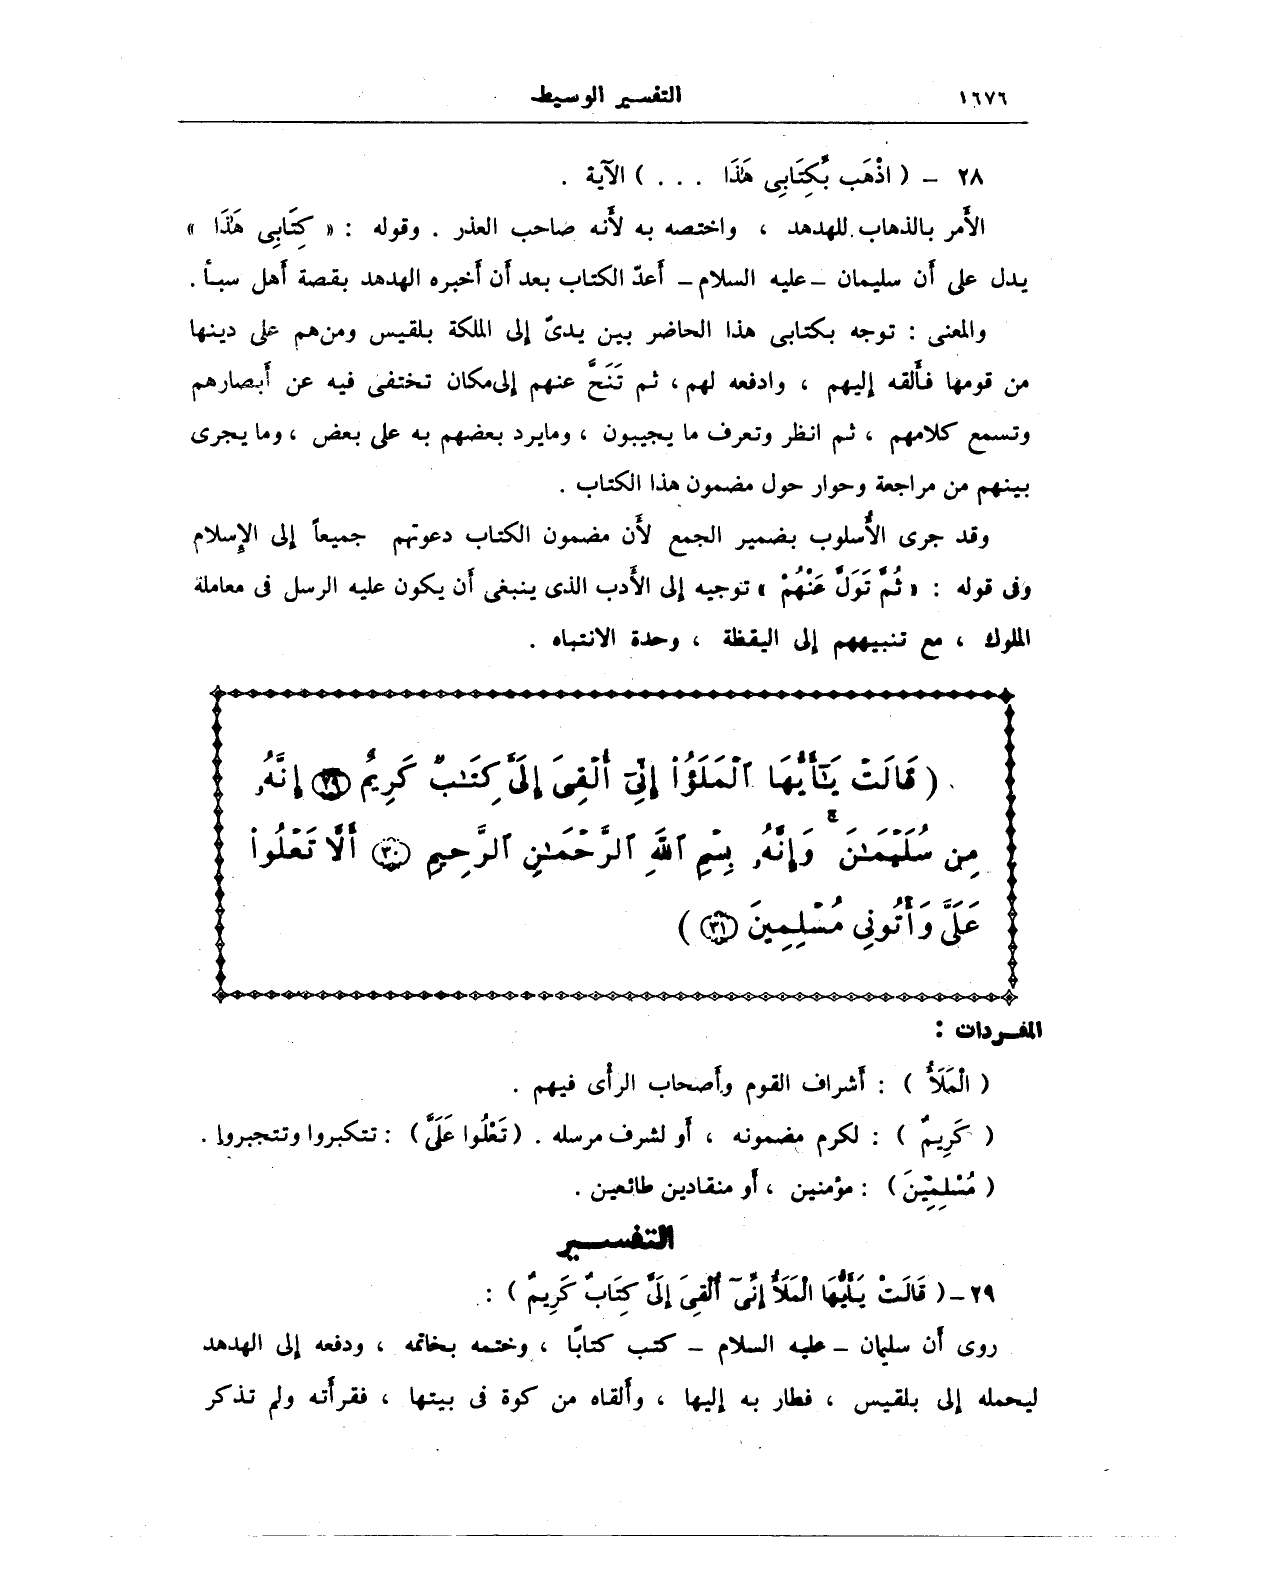 ١٦٧٦
التفسير الوسيط
٢٨ – ( اذْهَب بِّكِتَابِى هَٰذَا . . . ) الآية .
الأَمر بالذهاب للهدهد ، واختصه به لأَنه صاحب العذر . وقوله : « كِتَابِى هَٰذَا »
يدل على أَن سليمان – عليه السلام – أَعدّ الكتاب بعد أَن أَخبره الهدهد بقصة أَهل سبأ .
والمعنى : توجه بكتابى هذا الحاضر بين يدىّ إلى الملكة بلقيس ومن هم على دينها
من قومها فأَلقه إليهم ، وادفعه لهم ، ثم تَنَحَّ عنهم إلى مكان تختفى فيه عن أَبصارهم
وتسمع كلامهم ، ثم انظر وتعرف ما يجيبون ، وما يرد بعضهم به على بعض ، وما يجرى
بينهم من مراجعة وحوار حول مضمون هذا الكتاب .
وقد جرى الأُسلوب بضمير الجمع لأَن مضمون الكتاب دعوتهم جميعاً إلى الإسلام
وفى قوله : « ثُمَّ تَوَلَّ عَنْهُمْ » توجيه إلى الأَدب الذى ينبغى أَن يكون عليه الرسل فى معاملة
الملوك ، مع تنبيههم إلى اليقظة ، وحدة الانتباه .
( قَالَتْ يَٰٓأَيُّهَا ٱلْمَلَؤُا۟ إِنِّىٓ أُلْقِىَ إِلَىَّ كِتَٰبٌ كَرِيمٌ ٢٩ إِنَّهُۥ
مِن سُلَيْمَٰنَ وَإِنَّهُۥ بِسْمِ ٱللَّهِ ٱلرَّحْمَٰنِ ٱلرَّحِيمِ ٣٠ أَلَّا تَعْلُوا۟
عَلَىَّ وَأْتُونِى مُسْلِمِينَ ٣١ )
المفـردات :
( الْمَلَأُ ) : أَشراف القوم وأَصحاب الرأْى فيهم .
( كَرِيمٌ ) : لكرم مضمونه ، أَو لشرف مرسله . ( تَعْلُوا عَلَىَّ ) : تتكبروا وتتجبروا .
( مُسْلِمِينَ ) : مؤمنين ، أَو منقادين طائعين .
التفســـير
٢٩ – ( قَالَتْ يَٰٓأَيُّهَا الْمَلَأُ إِنِّىٓ أُلْقِىَ إِلَىَّ كِتَابٌ كَرِيمٌ ) :
روى أَن سليمان – عليه السلام – كتب كتابًا ، وختمه بخاتمه ، ودفعه إلى الهدهد
ليحمله إلى بلقيس ، فطار به إليها ، وأَلقاه من كوة فى بيتها ، فقرأَته ولم تذكر